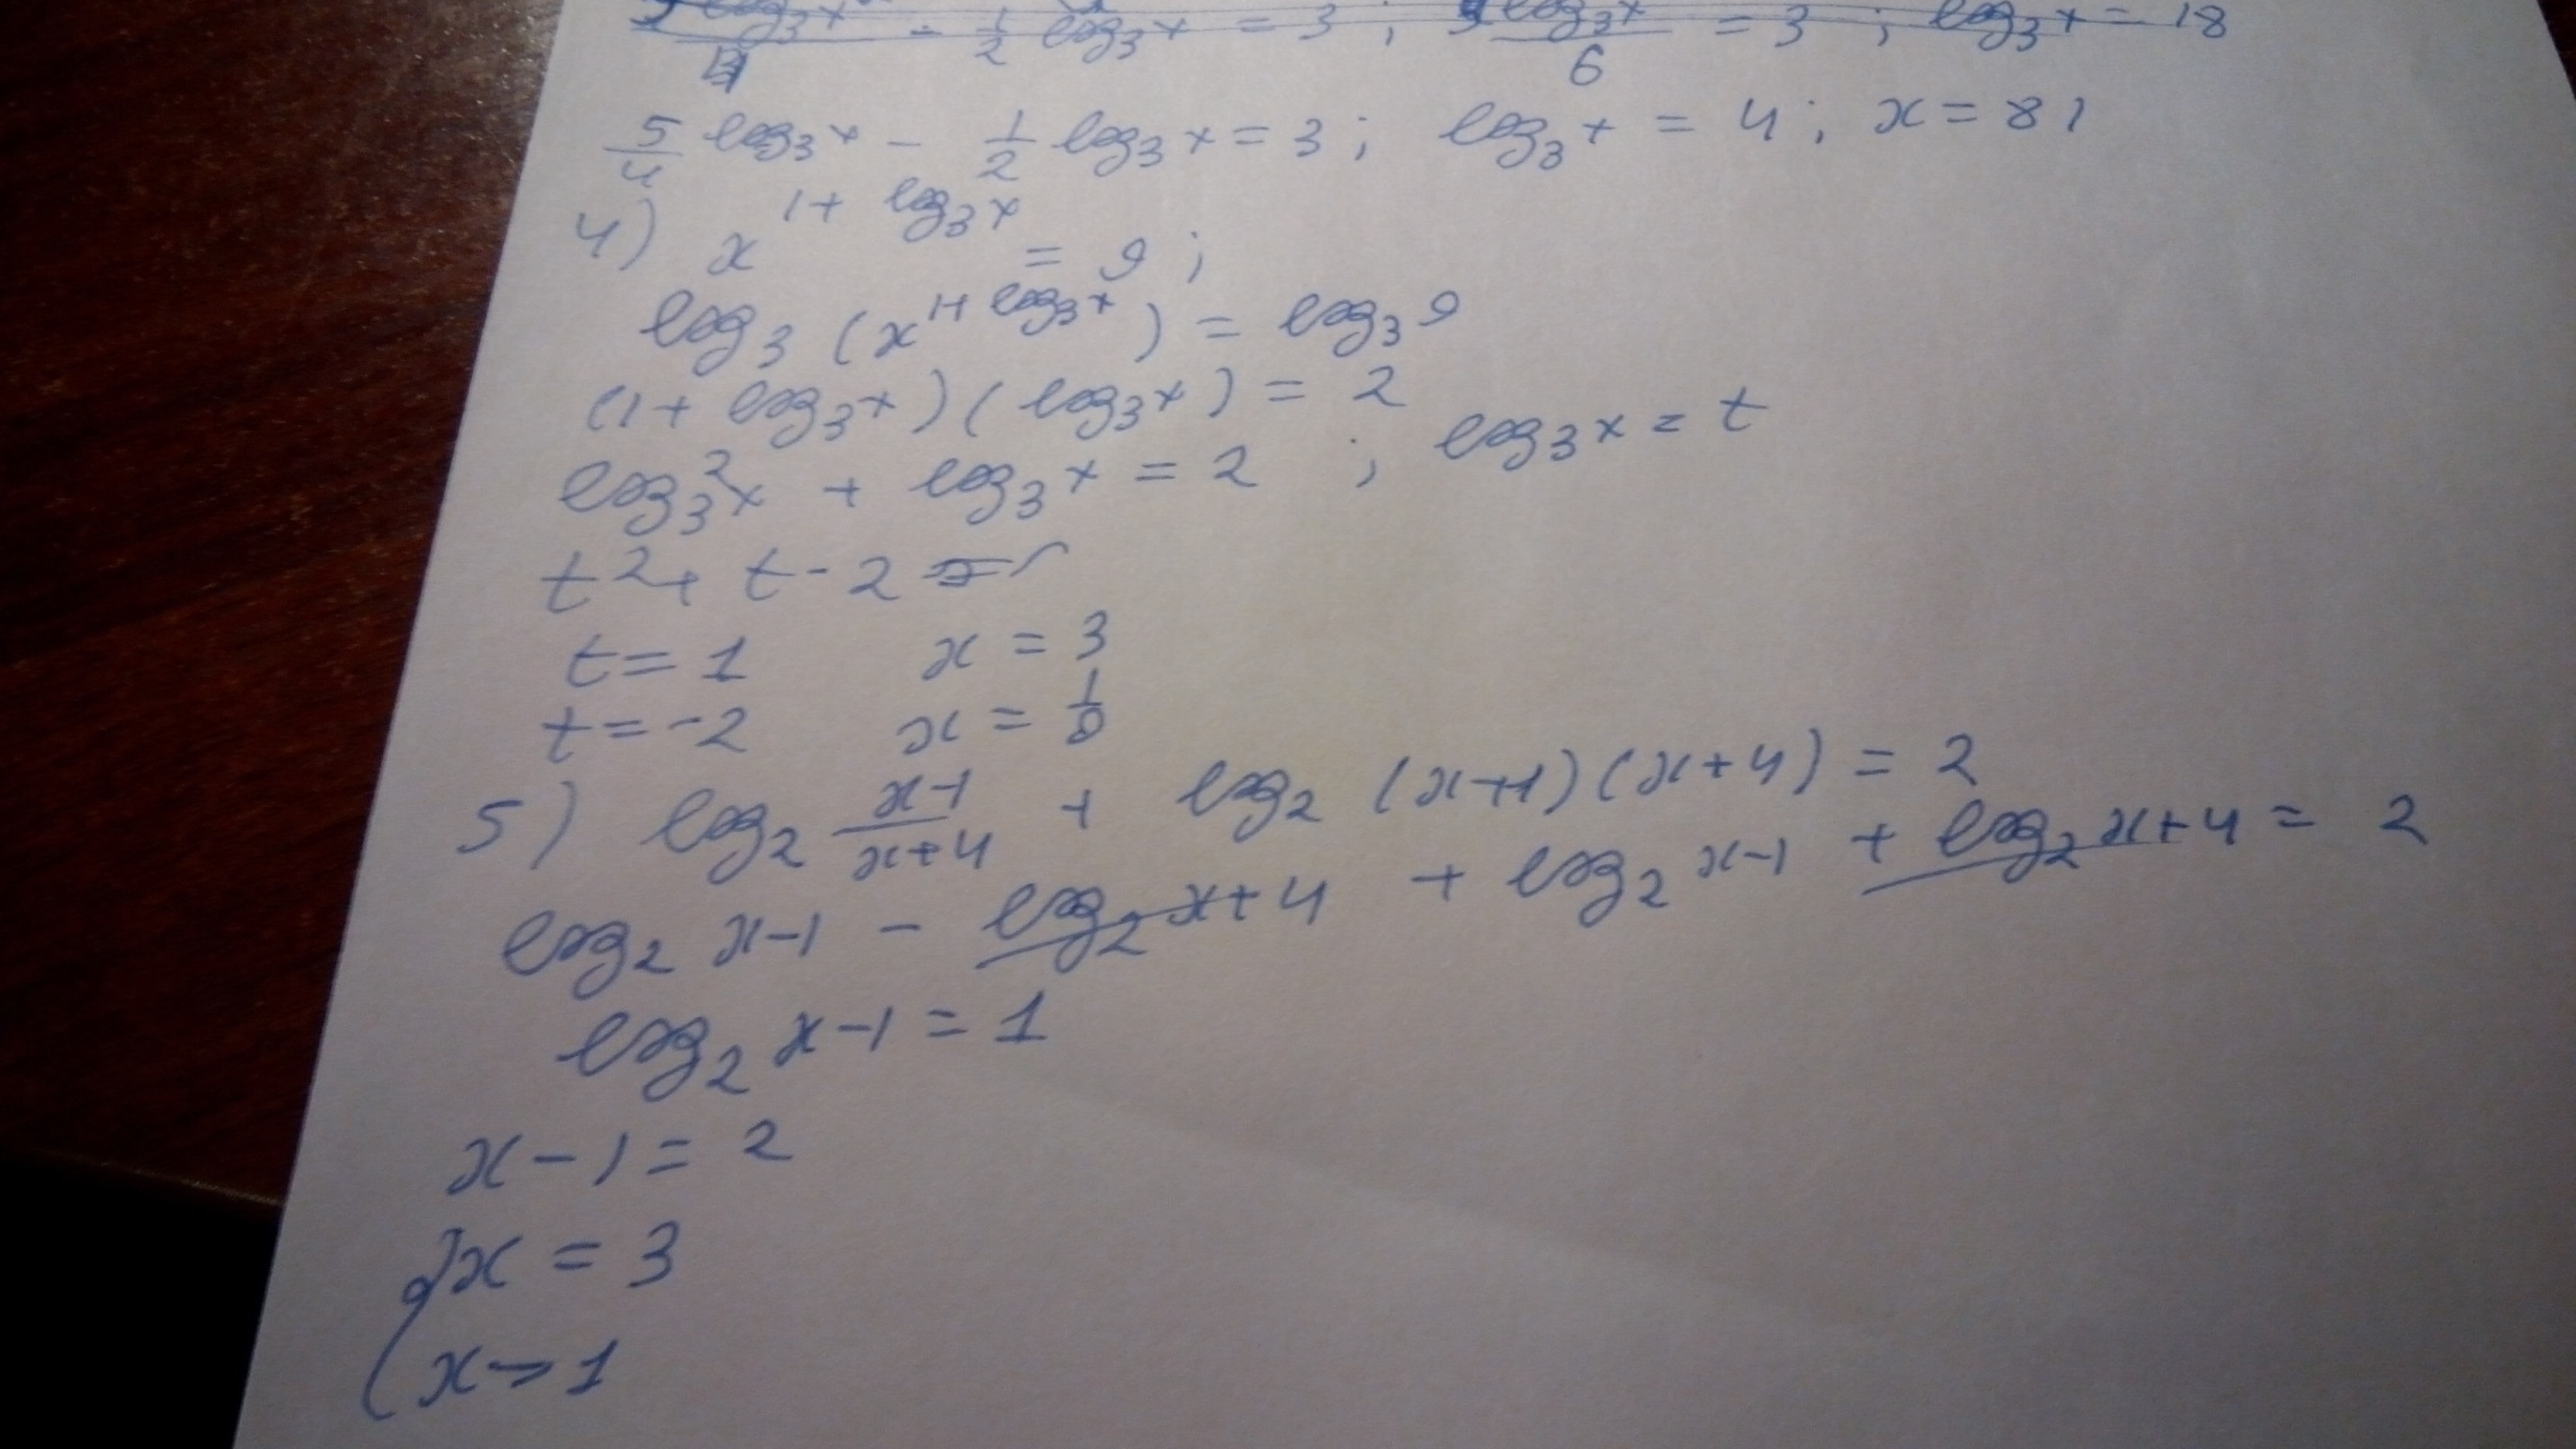 log₃x / 4 - 1/2 log₃x = 3 ; log₃x / 6 = 3 ; log₃x = 18
5/4 log₃x - 1/2 log₃x = 3 ; log₃x = 4 ; x = 81
4) x^(1 + log₃x) = 9 ;
log₃ (x^(1+ log₃x)) = log₃ 9
(1 + log₃x)(log₃x) = 2
log₃²x + log₃x = 2 ; log₃x = t
t² + t - 2 =
t = 1 x = 3
t = -2 x = 1/9
5) log₂ (x-1)/(x+4) + log₂ (x-1)(x+4) = 2
log₂ x-1 - log₂ x+4 + log₂ x-1 + log₂ x+4 = 2
log₂ x-1 = 1
x - 1 = 2
{x = 3
x > 1